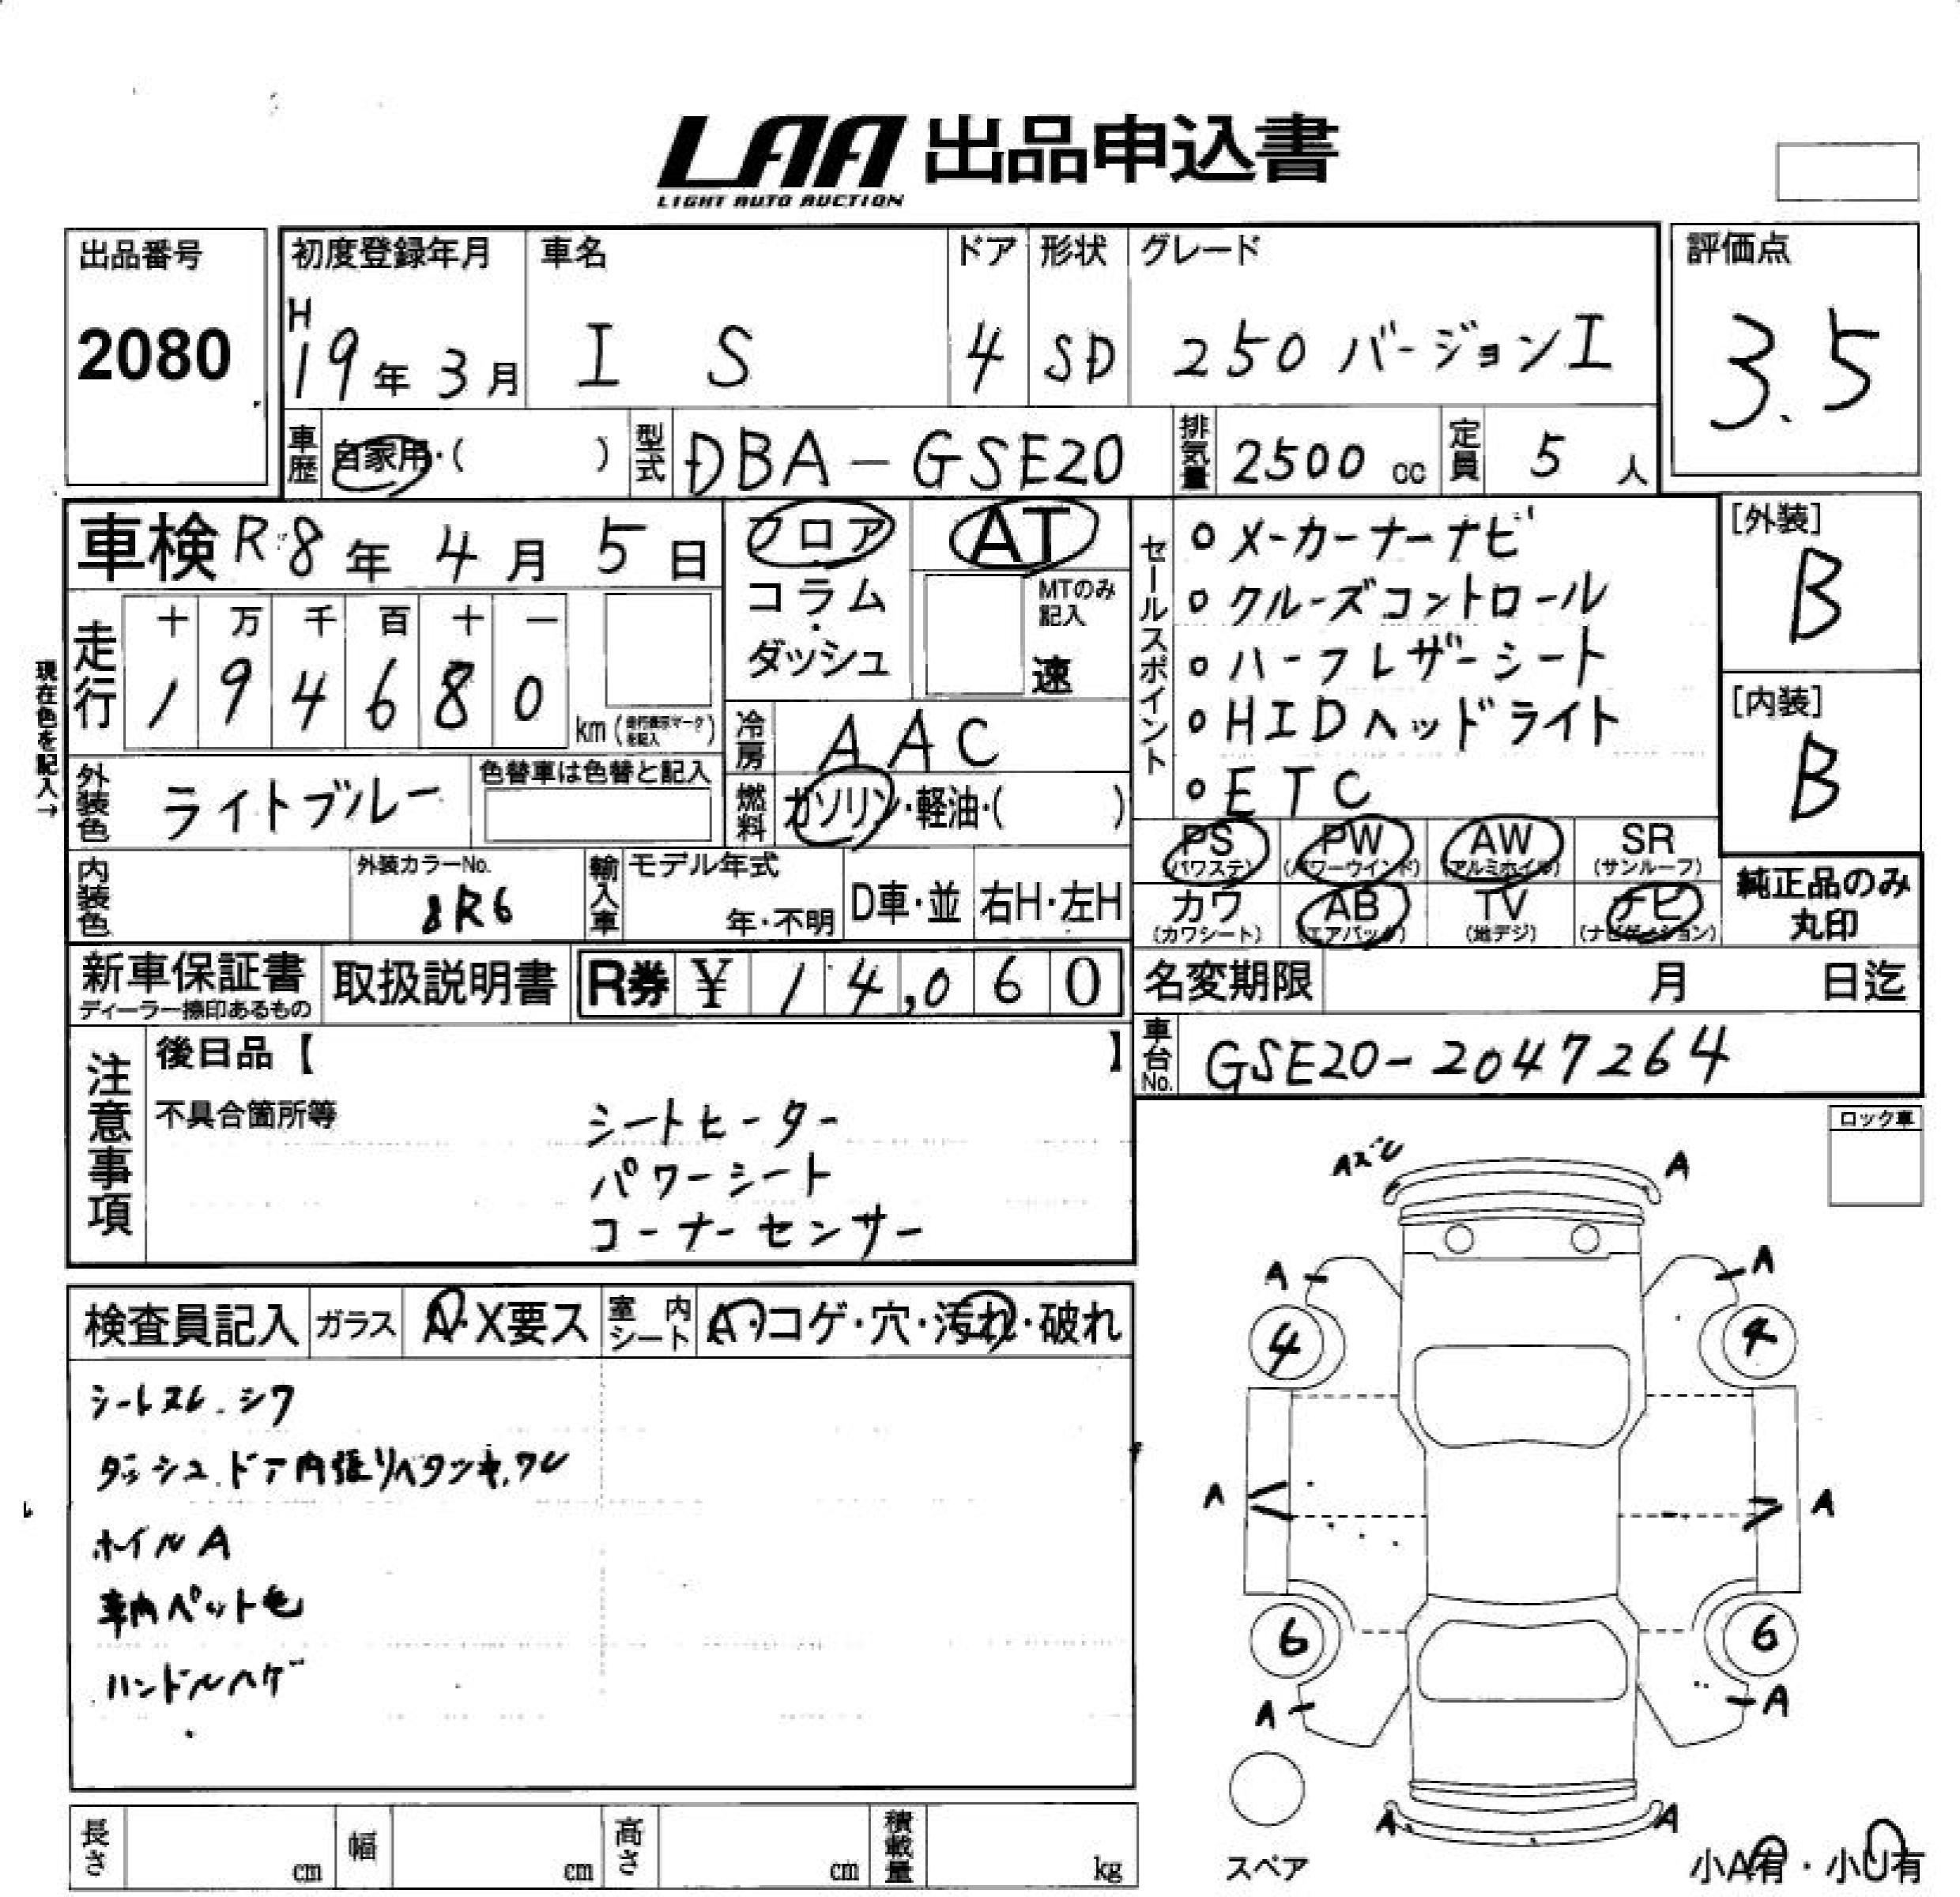 LAA 出品申込書
LIGHT AUTO AUCTION
出品番号
2080
初度登録年月
H19年3月
車名
IS
ドア
4
形状
SD
グレード
250 バージョンI
評価点
3.5
車歴 自家用・( )
型式 DBA-GSE20
排気量 2500 cc
定員 5 人
車検 R8年4月5日
フロア
コラム・ダッシュ
AT
MTのみ記入
速
セールスポイント
メーカーナービ
クルーズコントロール
ハーフレザーシート
HIDヘッドライト
ETC
[外装]
B
[内装]
B
現在色を記入→
走行
十 万 千 百 十 一
1 9 4 6 8 0
km
冷房 AAC
外装色 ライトブルー
色替車は色替と記入
燃料 ガソリン・軽油・( )
PS (パワステ)
PW (パワーウインド)
AW (アルミホイル)
SR (サンルーフ)
カワ (カワシート)
AB (エアバック)
TV (地デジ)
ナビ (ナビゲーション)
純正品のみ丸印
内装色
外装カラーNo.
8R6
輸入車
モデル年式
年・不明
D車・並
右H・左H
新車保証書
ディーラー捺印あるもの
取扱説明書
R券 ¥ 14,060
名変期限 月 日迄
車台No. GSE20-2047264
注意事項
後日品【 】
不具合箇所等
シートヒーター
パワーシート
コーナーセンサー
ロック車
検査員記入
ガラス
A・X要ス
室内シート
A・コゲ・穴・汚れ・破れ
シートスレ.シワ
ダッシュ.ドア内張りベタツキ.ワレ
ホイルA
車内ペット毛
ハンドルハゲ
Aズレ
A
A
A
4
4
A
A
6
6
A
A
A
A
スペア
小A有・小U有
長さ cm
幅 cm
高さ cm
積載量 kg